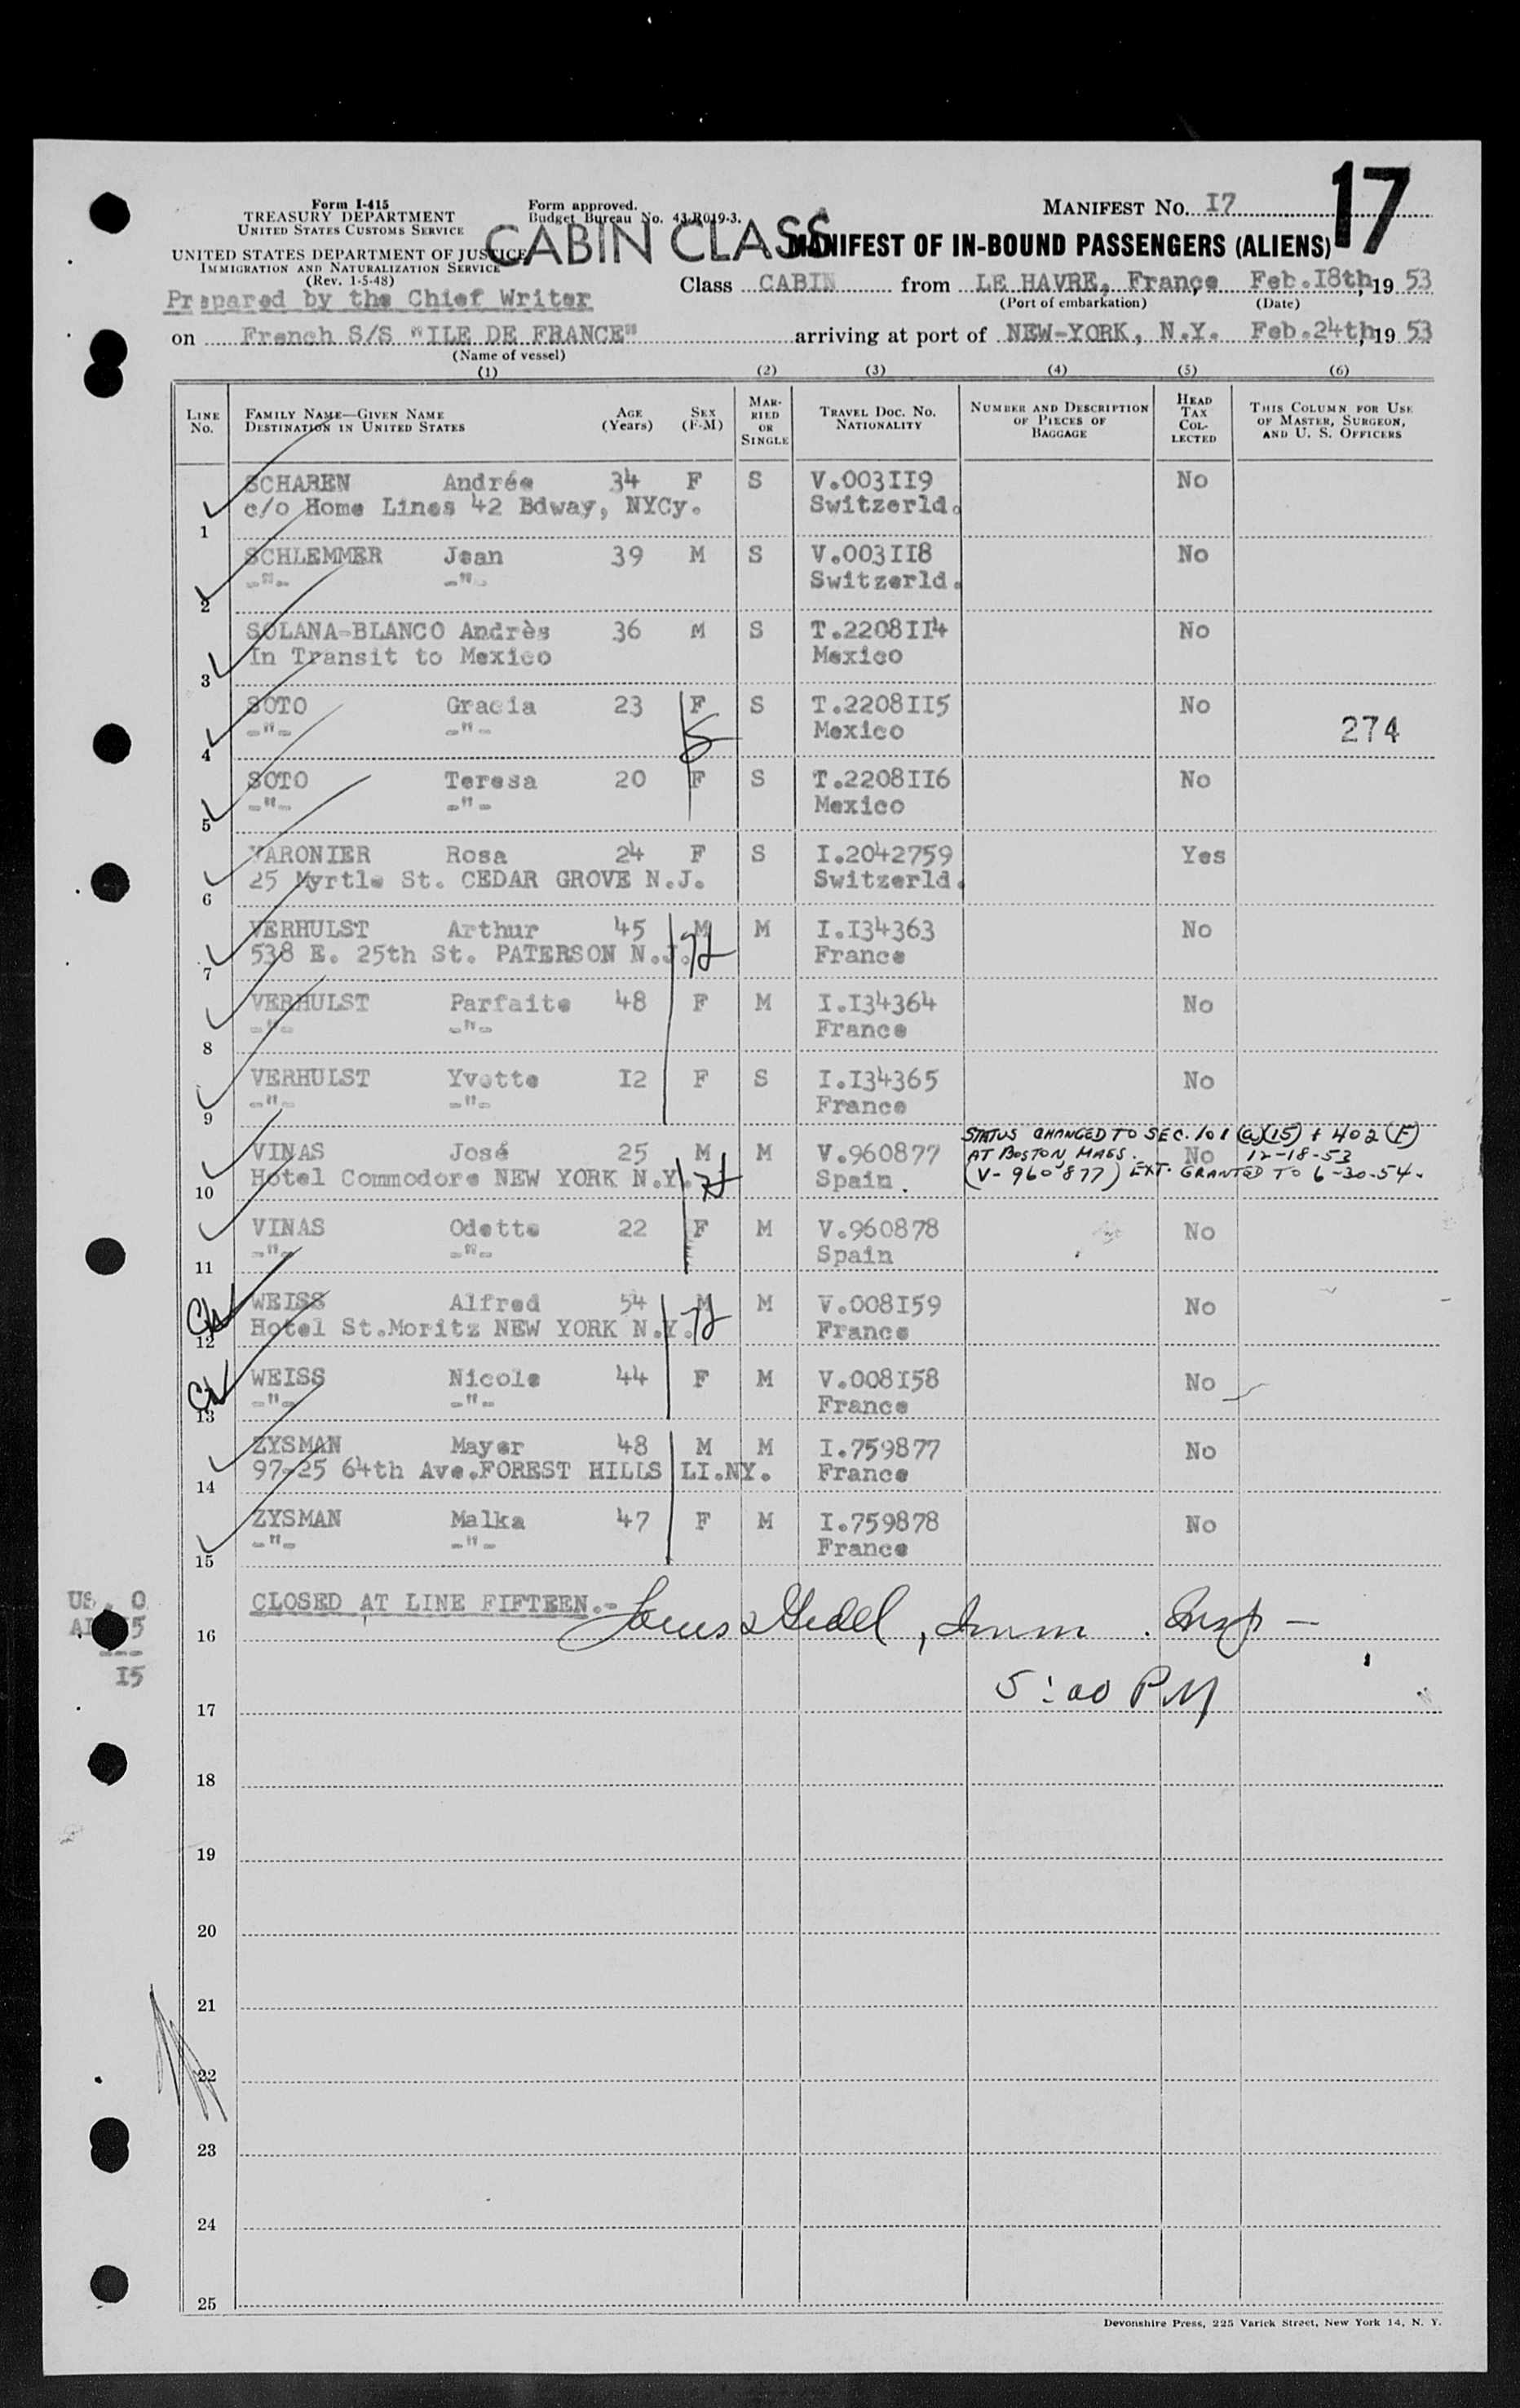 Form I-415
TREASURY DEPARTMENT
UNITED STATES CUSTOMS SERVICE
UNITED STATES DEPARTMENT OF JUSTICE
IMMIGRATION AND NATURALIZATION SERVICE
(Rev. 1-5-48)
Form approved.
Budget Bureau No. 43-R019-3.
CABIN CLASS
MANIFEST NO. 17
17
MANIFEST OF IN-BOUND PASSENGERS (ALIENS)
Prepared by the Chief Writer
Class CABIN from LE HAVRE, France, Feb.18th, 19 53
(Port of embarkation) (Date)
on French S/S "ILE DE FRANCE" arriving at port of NEW-YORK, N.Y. Feb.24th, 19 53
(Name of vessel)
(1) (2) (3) (4) (5) (6)
LINE NO. FAMILY NAME—GIVEN NAME DESTINATION IN UNITED STATES AGE (Years) SEX (F-M) MARRIED OR SINGLE TRAVEL DOC. NO. NATIONALITY NUMBER AND DESCRIPTION OF PIECES OF BAGGAGE HEAD TAX COLLECTED THIS COLUMN FOR USE OF MASTER, SURGEON, AND U. S. OFFICERS
SCHAREN Andrée 34 F S V.003119 No
1 c/o Home Lines 42 Bdway, NYCy. Switzerld.
SCHLEMMER Jean 39 M S V.003118 No
2 -"- -"- Switzerld.
SOLANA-BLANCO Andrès 36 M S T.2208114 No
3 In Transit to Mexico Mexico
SOTO Gracia 23 F S T.2208115 No
4 -"- -"- Mexico 274
SOTO Teresa 20 F S T.2208116 No
5 -"- -"- Mexico
VARONIER Rosa 24 F S I.2042759 Yes
6 25 Myrtle St. CEDAR GROVE N.J. Switzerld.
VERHULST Arthur 45 M M I.134363 No
7 538 E. 25th St. PATERSON N.J. France
VERHULST Parfaite 48 F M I.134364 No
8 -"- -"- France
VERHULST Yvette 12 F S I.134365 No
9 -"- -"- France
STATUS CHANGED TO SEC. 101 (a)(15) + 402 (F)
AT BOSTON MASS. 12-18-53
(V-960877) EXT. GRANTED TO 6-30-54.
VINAS José 25 M M V.960877 No
10 Hotel Commodore NEW YORK N.Y. Spain.
VINAS Odette 22 F M V.960878 No
11 -"- -"- Spain
WEISS Alfred 54 M M V.008159 No
12 Hotel St.Moritz NEW YORK N.Y. France
WEISS Nicole 44 F M V.008158 No
13 -"- -"- France
ZYSMAN Mayer 48 M M I.759877 No
14 97-25 64th Ave.FOREST HILLS LI.NY. France
ZYSMAN Malka 47 F M I.759878 No
15 -"- -"- France
US. 0
15
CLOSED AT LINE FIFTEEN.-
16 , Imm. Insp —
5:00 PM
17
18
19
20
21
22
23
24
25
Devonshire Press, 225 Varick Street, New York 14, N. Y.